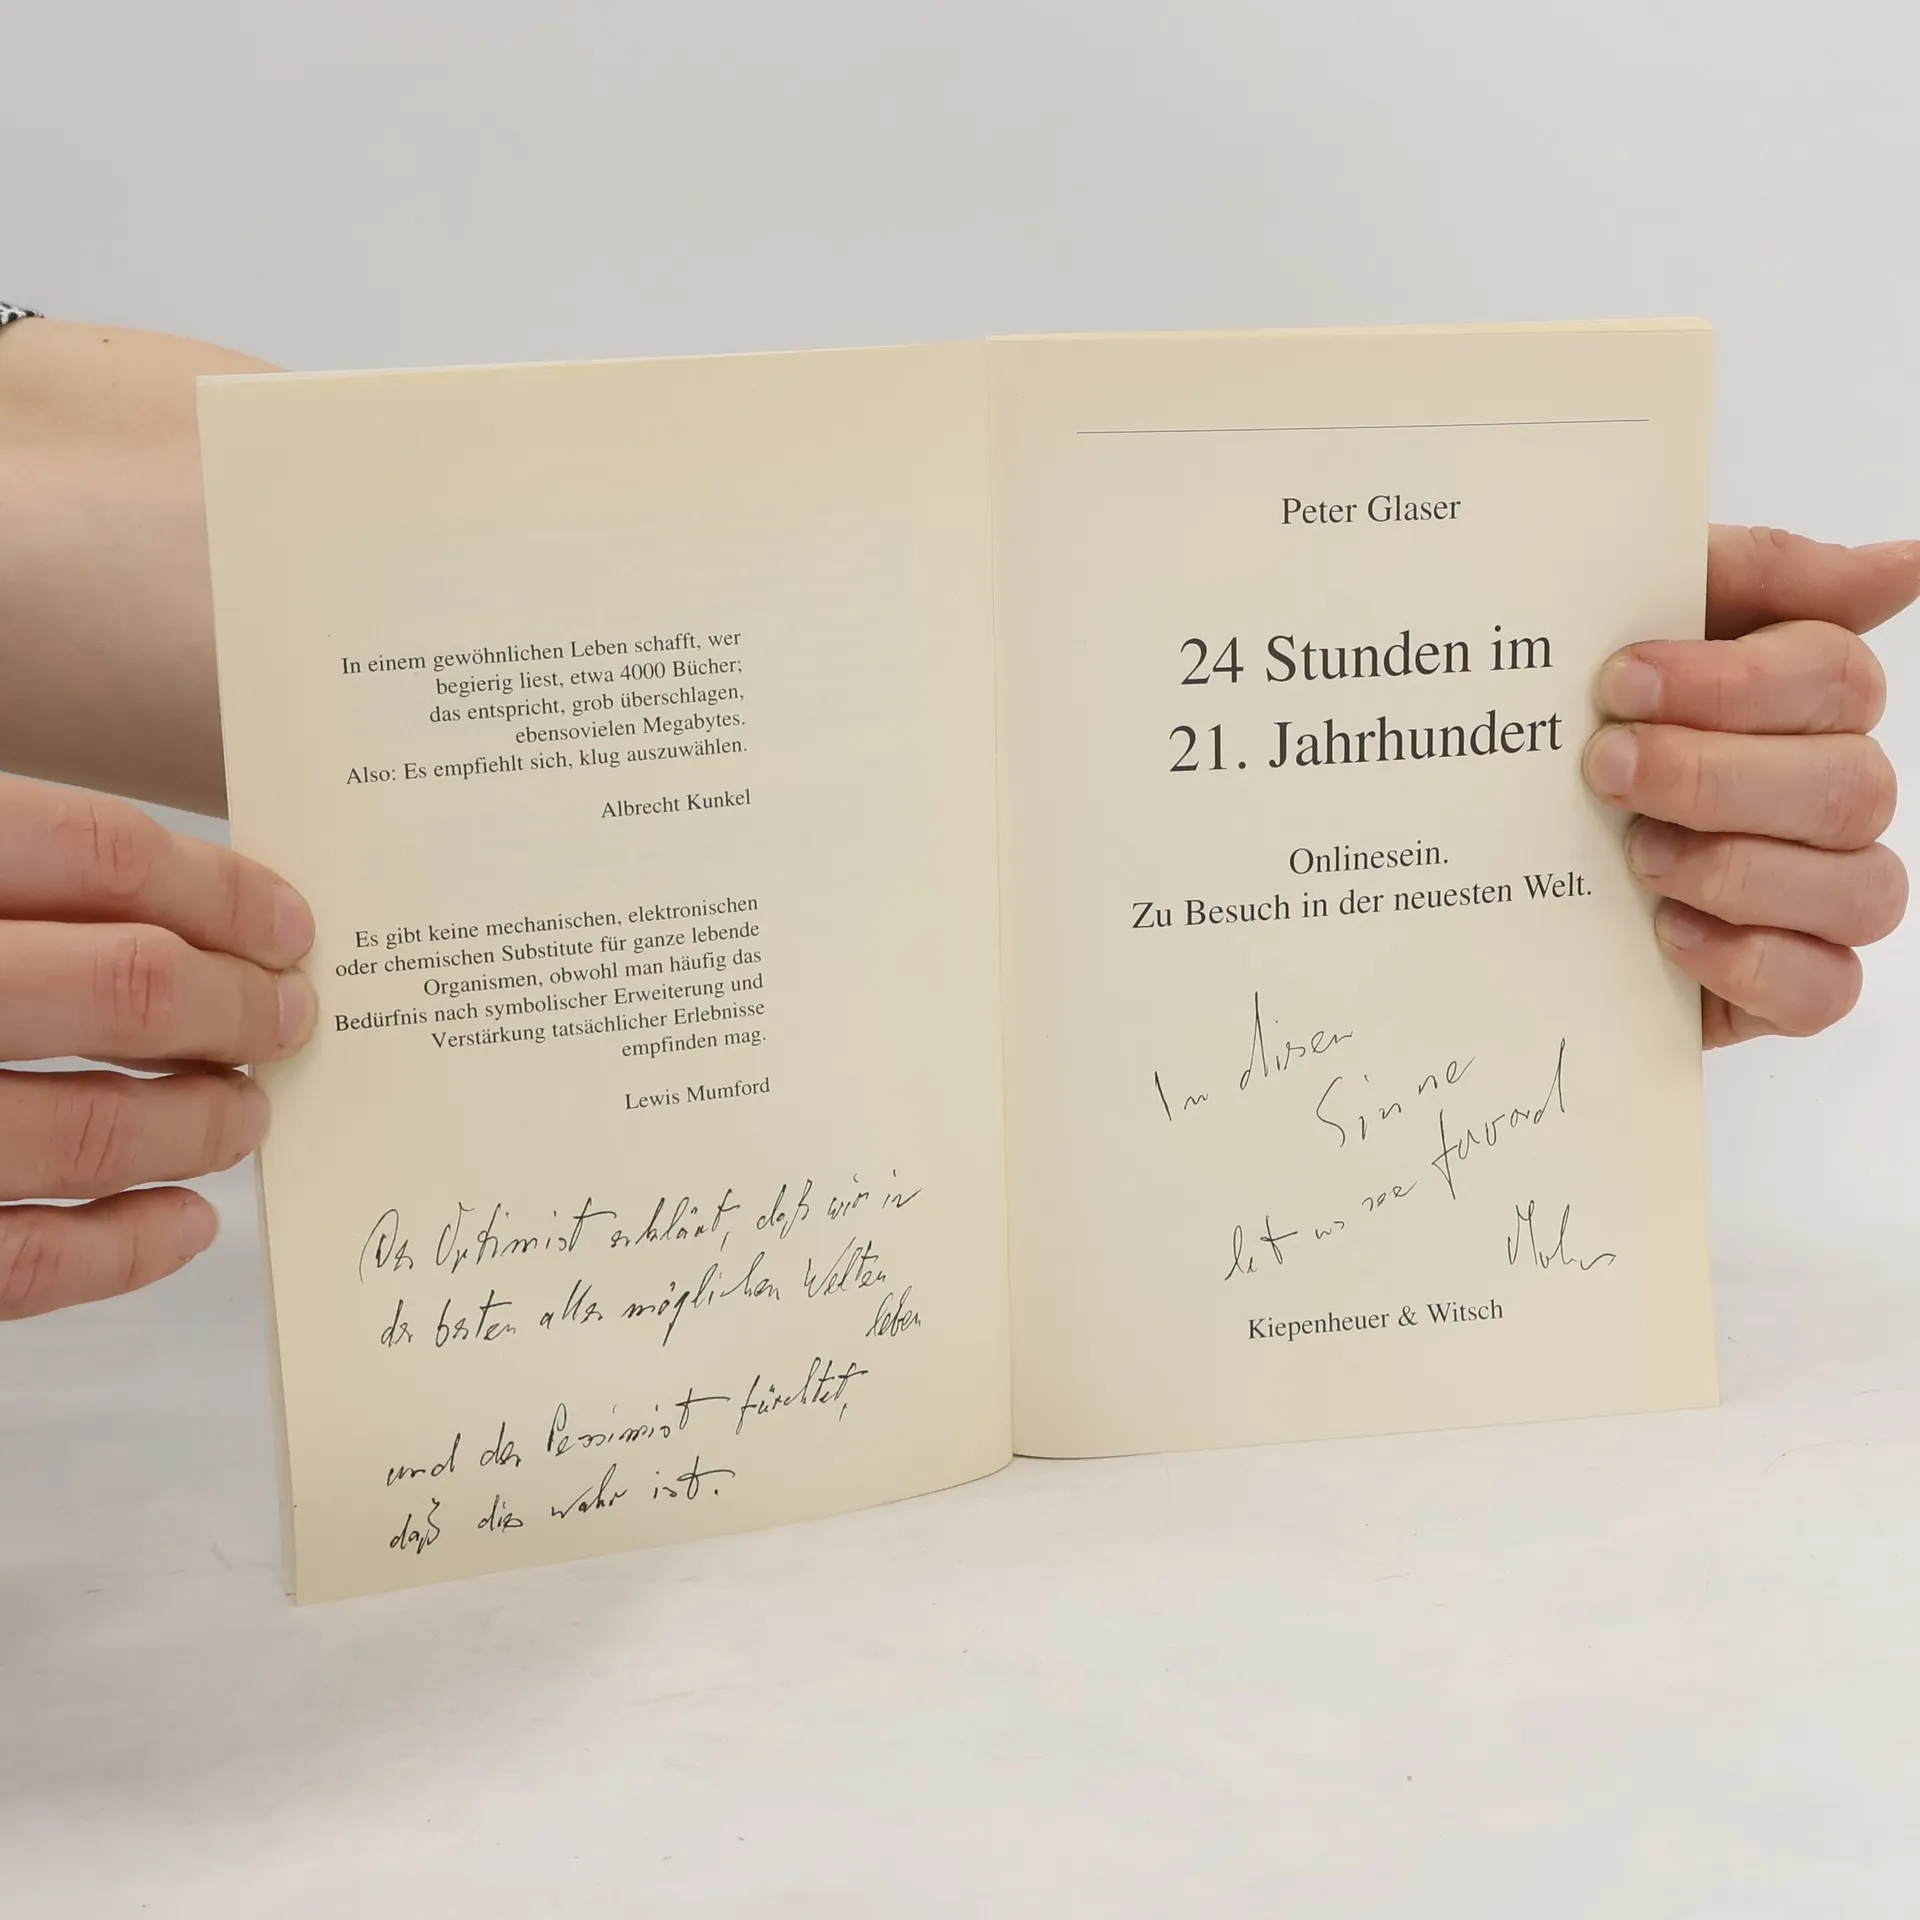 In einem gewöhnlichen Leben schafft, wer
begierig liest, etwa 4000 Bücher;
das entspricht, grob überschlagen,
ebensovielen Megabytes.
Also: Es empfiehlt sich, klug auszuwählen.
Albrecht Kunkel
Es gibt keine mechanischen, elektronischen
oder chemischen Substitute für ganze lebende
Organismen, obwohl man häufig das
Bedürfnis nach symbolischer Erweiterung und
Verstärkung tatsächlicher Erlebnisse
empfinden mag.
Lewis Mumford
Der Optimist erklärt, daß wir in
der besten aller möglichen Welten
leben
und der Pessimist fürchtet,
daß dies wahr ist.
Peter Glaser
24 Stunden im
21. Jahrhundert
Onlinesein.
Zu Besuch in der neuesten Welt.
In diesem
Sinne
let us see forward
Kiepenheuer & Witsch